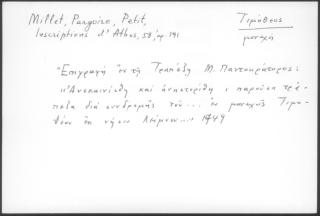 Millet, Pargoire, Petit,
Inscriptions d'Athos, 58, ἀρ. 191
Τιμόθεος
μοναχὸς
Ἐπιγραφὴ ἐν τῇ Τραπέζῃ Μ. Παντοκράτορος:
"Ἀνεκαινίσθη καὶ ἀνιστορίθη ἡ παροῦσα τρά-
πεζα διὰ συνδρομῆς τοῦ... ἐν μοναχοῖς Τιμο-
θέου ἐκ νήσου Λήμνου... 1749